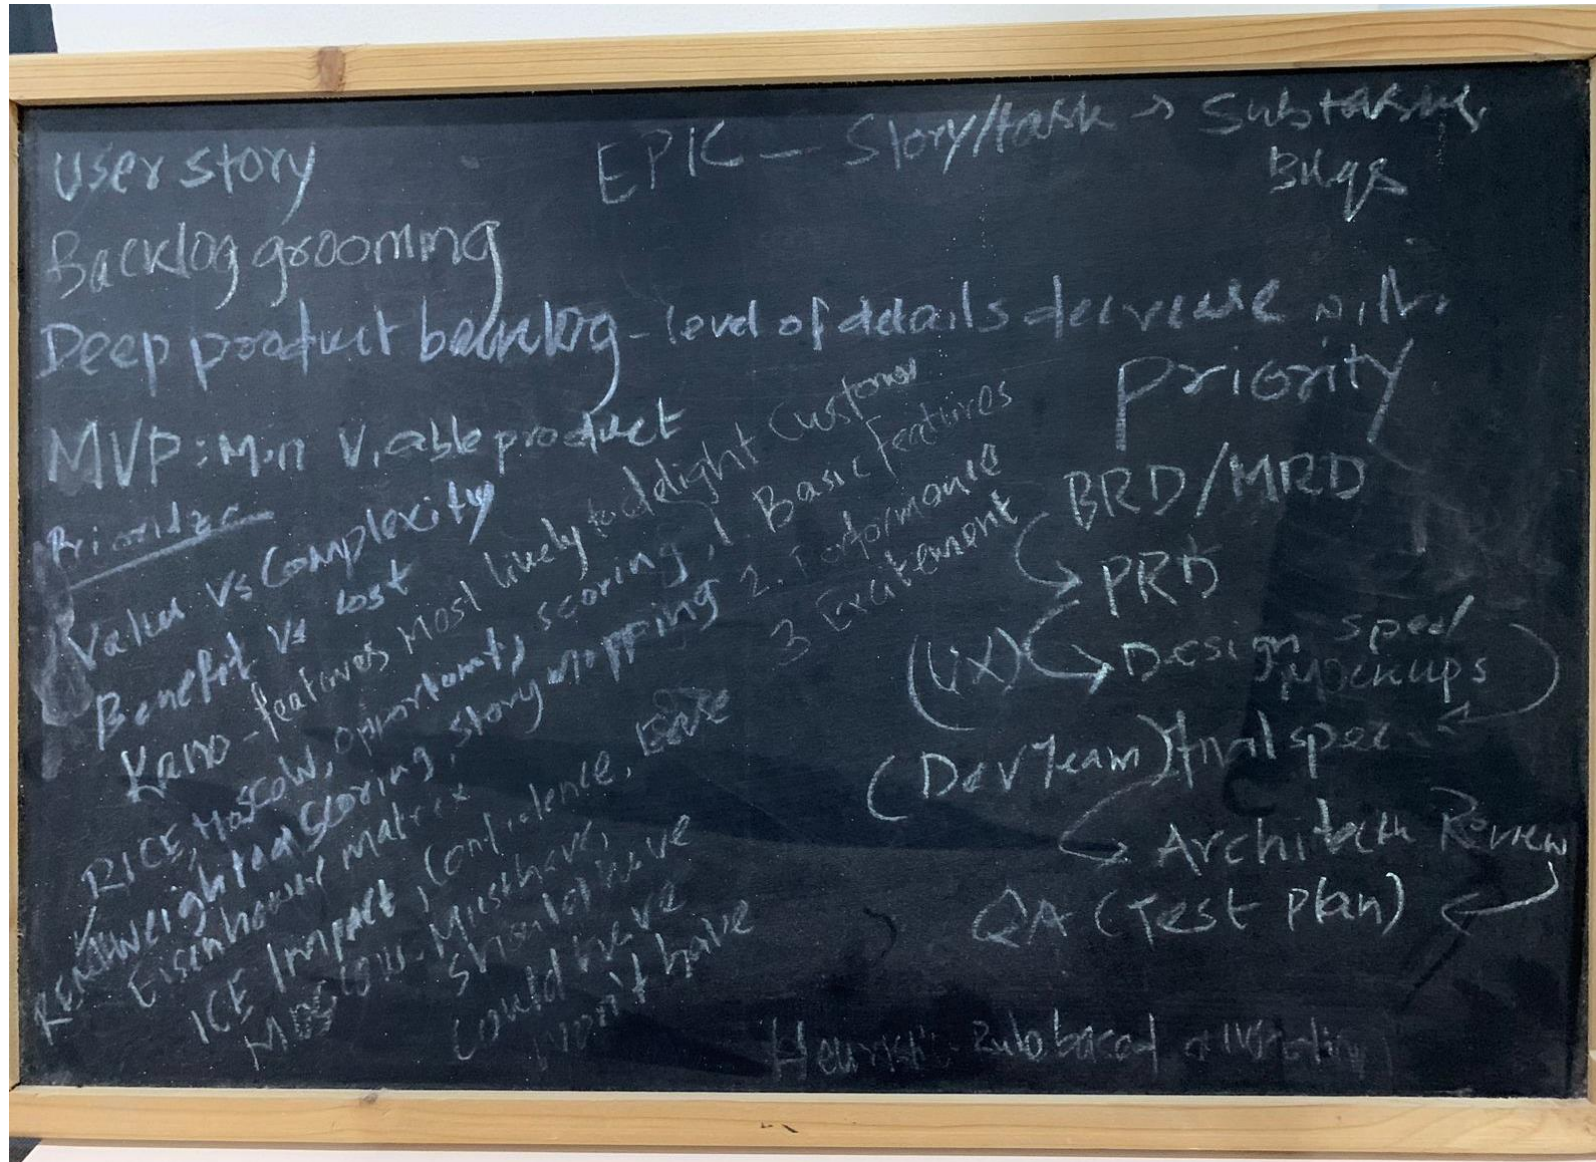 User story
EPIC - Story/task → Subtasks,
Bugs
Backlog grooming
Deep product backlog - level of details decrease with
priority
MVP: Min Viable product
Prioritize
Value vs Complexity
Benefit vs Cost
Kano - features most likely to delight customer
1 Basic features
2. Performance
3 Excitement
RICE, MoSCoW, opportunity scoring,
weighted scoring, story mapping
Eisenhower matrix
ICE Impact, Confidence, Ease
MoSCoW - Must have,
Should have
Could have
Won't have
BRD/MRD
PRD
(UX) → Design spec
Mockups
(Dev Team) final spec
Architecture Review
QA (Test plan)